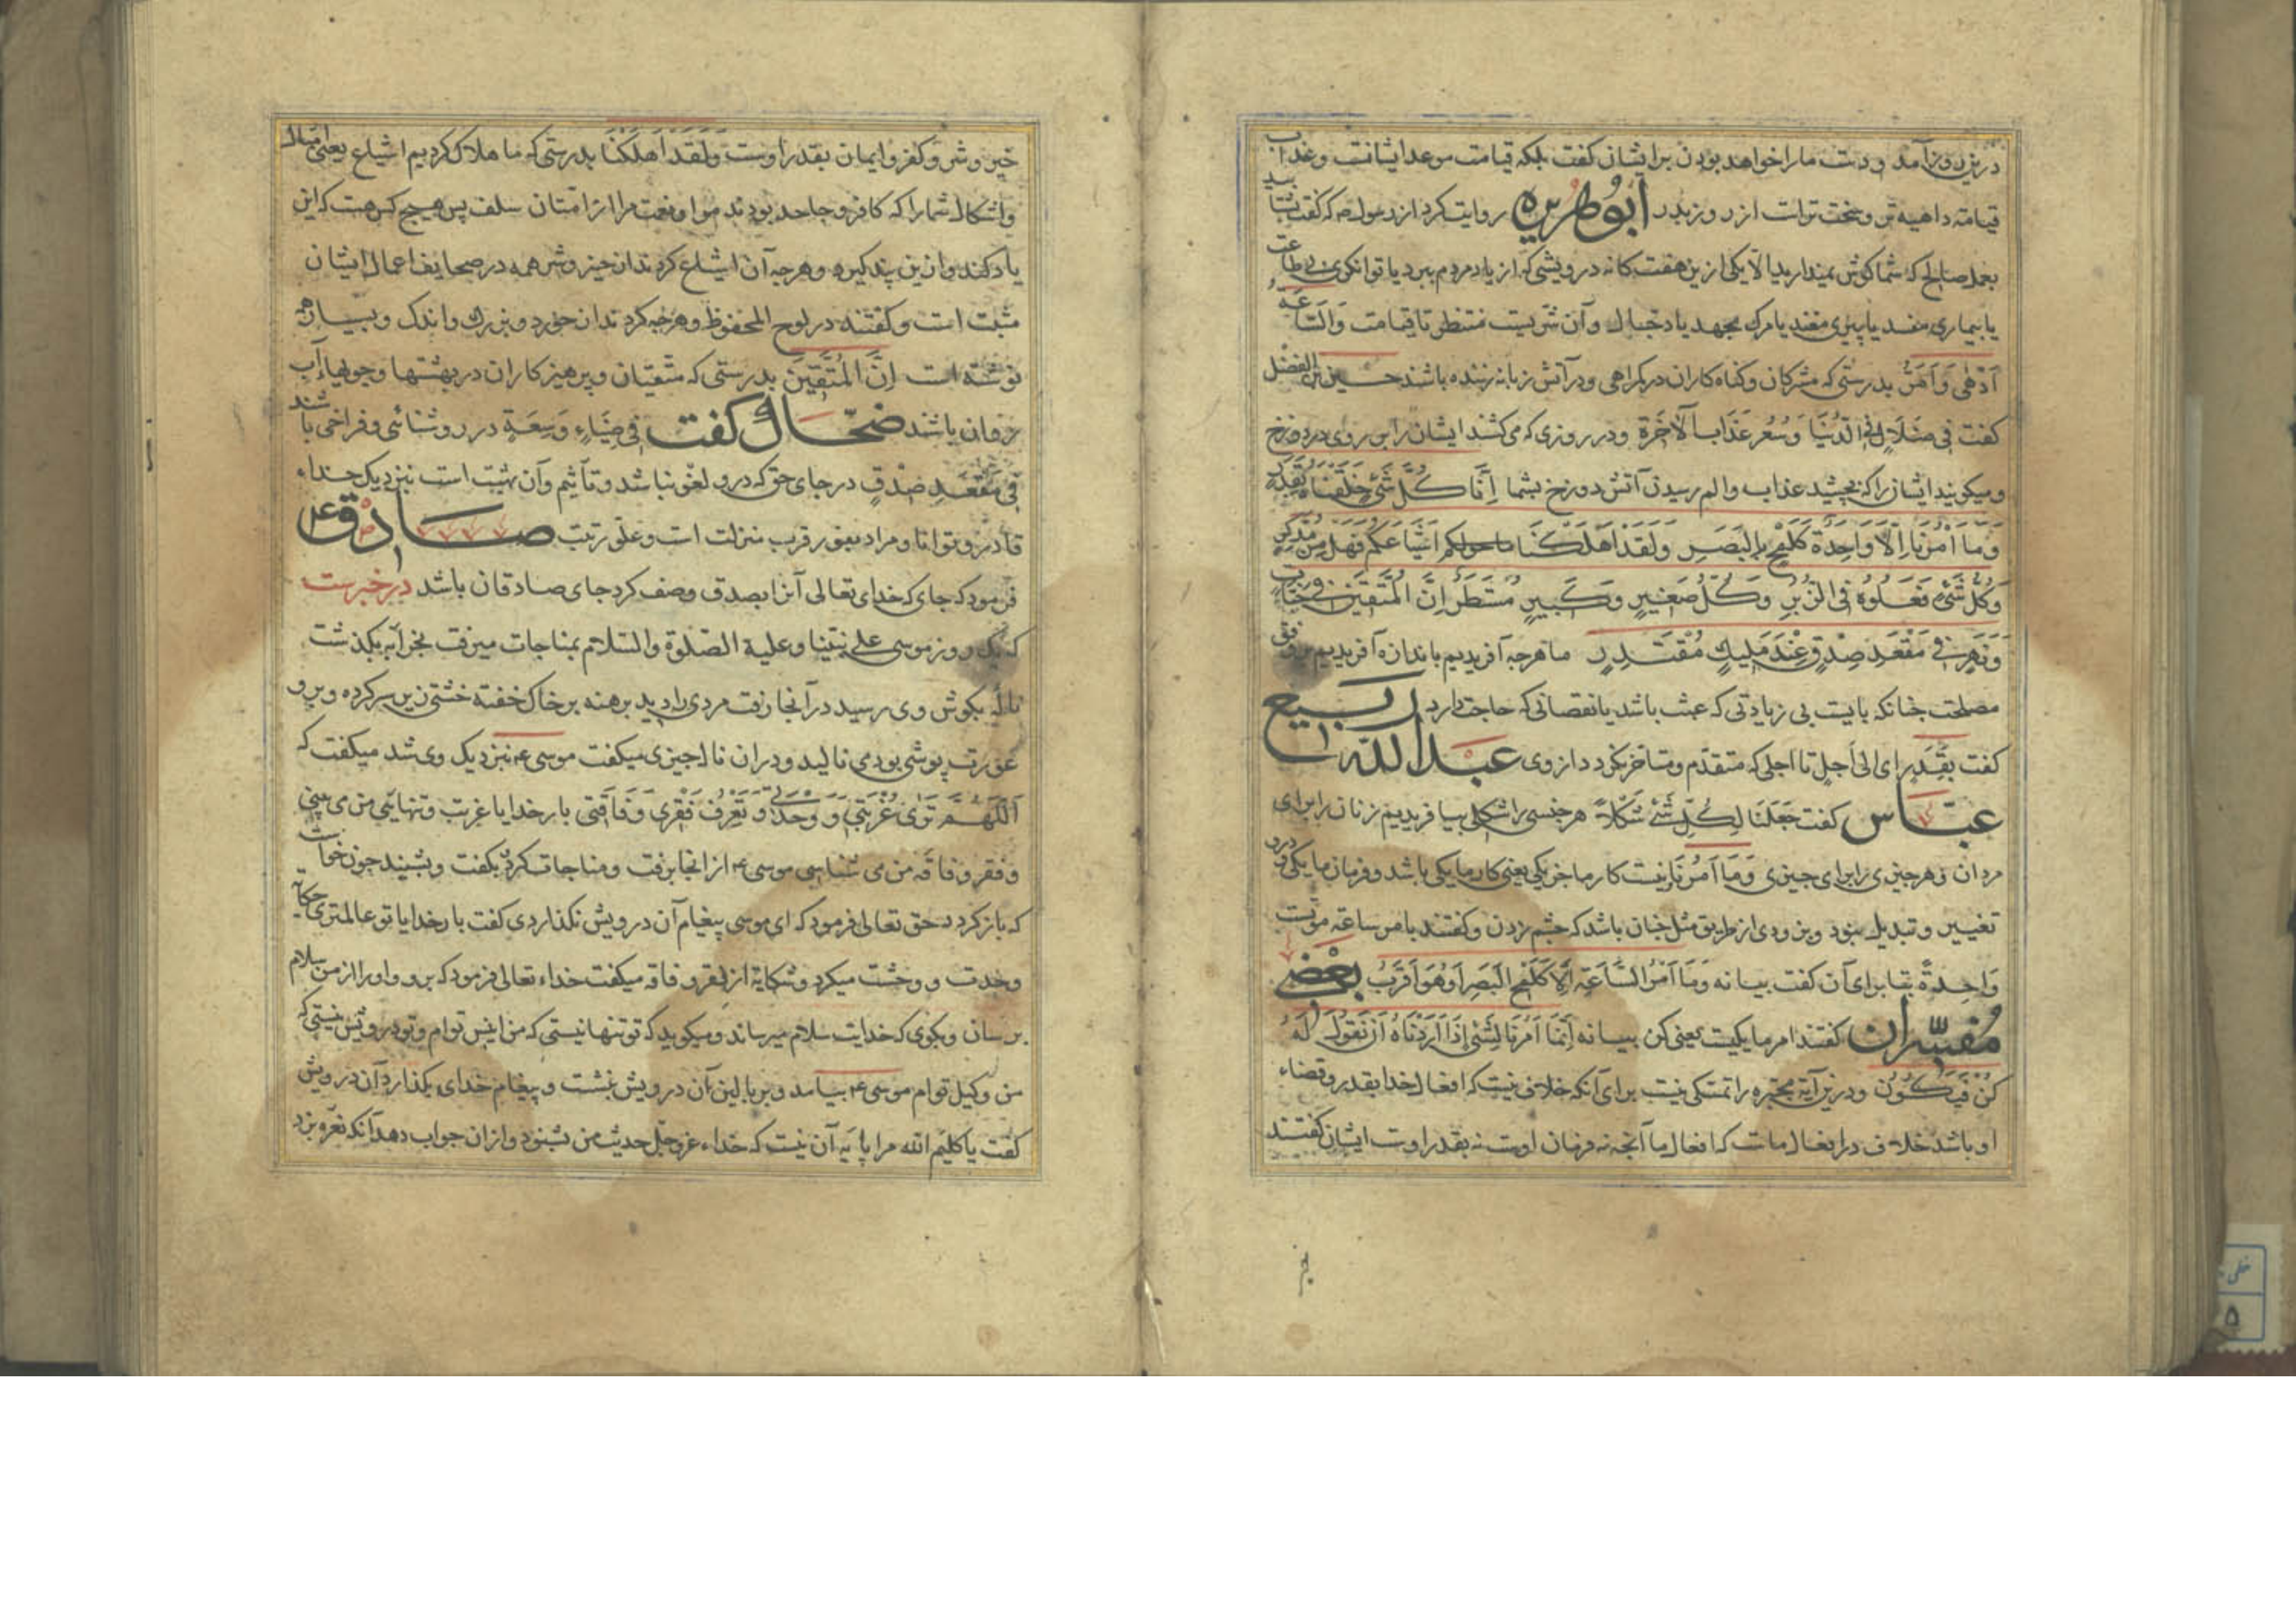 درین روز آمد و دست ما را خواهد بودن بر ایشان گفت بلکه قیامت موعد ایشانست و عذاب
قیامت داهیه تر و سخت ترست از روز بدر ابوهریره روایت کرد از رسول ص که گفت بشتابید
بعمل صالح که شما گوش نمیدارید الا یکی ازین هفت کانه درویشی که از یاد مردم ببرد یا توانگری بی طاعت
یا بیماری مفسد یا پیری مفند یا مرگ مجهد یا دجال و آن شریست منتظر تا قیامت وَالسَّاعَةُ
اَدْهٰی وَاَمَرُّ بدرستی که مشرکان و کناه کاران در کمراهی و در آتش زبانه زننده باشند حسین بن الفضل
کفت فی ضَلَالٍ فی الدُّنْیَا وَسُعُر عَذَابَ الآخِرَة و در روزی که می کشند ایشان را بر روی در دوزخ
و میکویند ایشان را که بچشید عذاب و الم رسیدن آتش دوزخ بشما اِنَّا کُلَّ شَیْءٍ خَلَقْنَاهُ بِقَدَرٍ
وَمَا اَمْرُنَا اِلَّا وَاحِدَةٌ کَلَمْحٍ بِالْبَصَرِ وَلَقَدْ اَهْلَکْنَا ماحولکم اَشْیَاعَکُمْ فَهَلْ مِنْ مُدَّکِرٍ
وَکُلُّ شَیْءٍ فَعَلُوهُ فِی الزُّبُرِ وَکُلُّ صَغِیرٍ وَکَبِیرٍ مُسْتَطَرٌ اِنَّ الْمُتَّقِینَ فِی جَنَّاتٍ
وَنَهَرٍ فِی مَقْعَدِ صِدْقٍ عِنْدَ مَلِیكٍ مُقْتَدِرٍ ما هرجه آفریدیم باندازه آفریدیم بر وفق
مصلحت جنانکه بایست بی زیادتی که عبث باشد یا نقصانی که حاجت دارد ربیع
کفت بِقَدَرٍ ای الی اَجَلٍ تا اجلی که متقدم و متاخر نکردد از وی عبدالله
عبّاس کفت جَعَلْنَا لِکُلِّ شَیْءٍ شَکْلاً هر جنسی را شکلی بیافریدیم زنان را برای
مردان و هر جیزی را برای جیزی وَمَا اَمْرُنَا نیست کار ما جز یکی یعنی کار ما یکی باشد و فرمان ما یکی و درو
تغییر و تبدیل نبود و بزودی از طریق مثل جنان باشد که جشم زدن و کفتند بامر ساعة موتست
وَاحِدَةٌ بقا برای آن کفت بیانه وَمَا اَمْرُ السَّاعَةِ اِلَّا کَلَمْحِ الْبَصَرِ اَوْ هُوَ اَقْرَبُ بعضی
مفسّران کفتند امر ما یکیست یعنی کن بیانه اِنَّمَا اَمْرُنَا لِشَیْءٍ اِذَا اَرَدْنَاهُ اَنْ نَقُولَ لَهُ
کُنْ فَیَکُونُ و درین آیة مجبره را تمسکی نیست برای آنکه خلاف نیست که افعال خدا بقدر و قضاء
او باشد خلاف در افعال ماست که افعال ما آنجه نه فرمان اوست نه بقدر اوست ایشان کفتند
خیر
خیر و شر و کفر و ایمان بقدر اوست وَلَقَدْ اَهْلَکْنَا بدرستی که ما هلاک کردیم اشیاع یعنی امثال
و اشکال شما را که کافر و جاحد بودند از امتان سلف پس هیچ کس هست که این
یاد کند و ازین پند کیرد و هرجه آن اشیاع کردند از خیر و شر همه در صحایف اعمال ایشان
مثبت است و کفتند در لوح المحفوظ و هرجه کردند از خورد و بزرك و اندک و بسیار همه
نوشته است اِنَّ الْمُتَّقِینَ بدرستی که متقیان و پرهیزکاران در بهشتها و جویهاء آب
روان باشند ضحّاك کفت فی ضِیَاءٍ وَسِعَةٍ در روشنائی و فراخی باشند
فِی مَقْعَدِ صِدْقٍ در جای حق که درو لغو نباشد و تأثیم و آن بهشت است نزدیک خداء
قادر و توانا و مراد قرب منزلت است و علو رتبت صادق ع
فرمود که جای که خدای تعالی آنرا بصدق وصف کرد جای صادقان باشد در خبرست
که یک روز موسی علی نبینا و علیه الصلوة والسلام بمناجات میرفت بخرابه بکذشت
نالۀ بکوش وی رسید در آنجا رفت مردی را دید برهنه بر خاک خفته خشتی زیر سر کرده و برو
عورت پوشی بود می نالید و در ان ناله جیزی میکفت موسی ع نزدیک وی شد میکفت که
اَللّٰهُمَّ تَرٰی غُرْبَتِی وَوَحْدَتِی وَتَعْرِفُ فَقْرِی وَفَاقَتِی بار خدایا غربت و تنهایی من می بینی
و فقر و فاقه من می شناسی موسی ع از انجا برفت و مناجات کرد بکفت و بشنید جون خواست
که باز کردد حق تعالی فرمود که ای موسی پیغام آن درویش نکذاردی کفت بار خدایا تو عالمتری حکایة
وحدت و وحشت میکرد و شکایة از فقر و فاقه میکفت خداء تعالی فرمود که برو و او را از من سلام
برسان و بکوی که خدایت سلام میرساند و میکوید که تو تنها نیستی که من انیس توام و تو درویش نیستی که
من وکیل توام موسی ع بیامد و بر بالین آن درویش بنشست و پیغام خدای بکذارد آن درویش
کفت یا کلیم الله مرا پایه آن نیست که خداء عزوجل حدیث من بشنود و از ان جواب دهد آنکه نعرۀ بزد